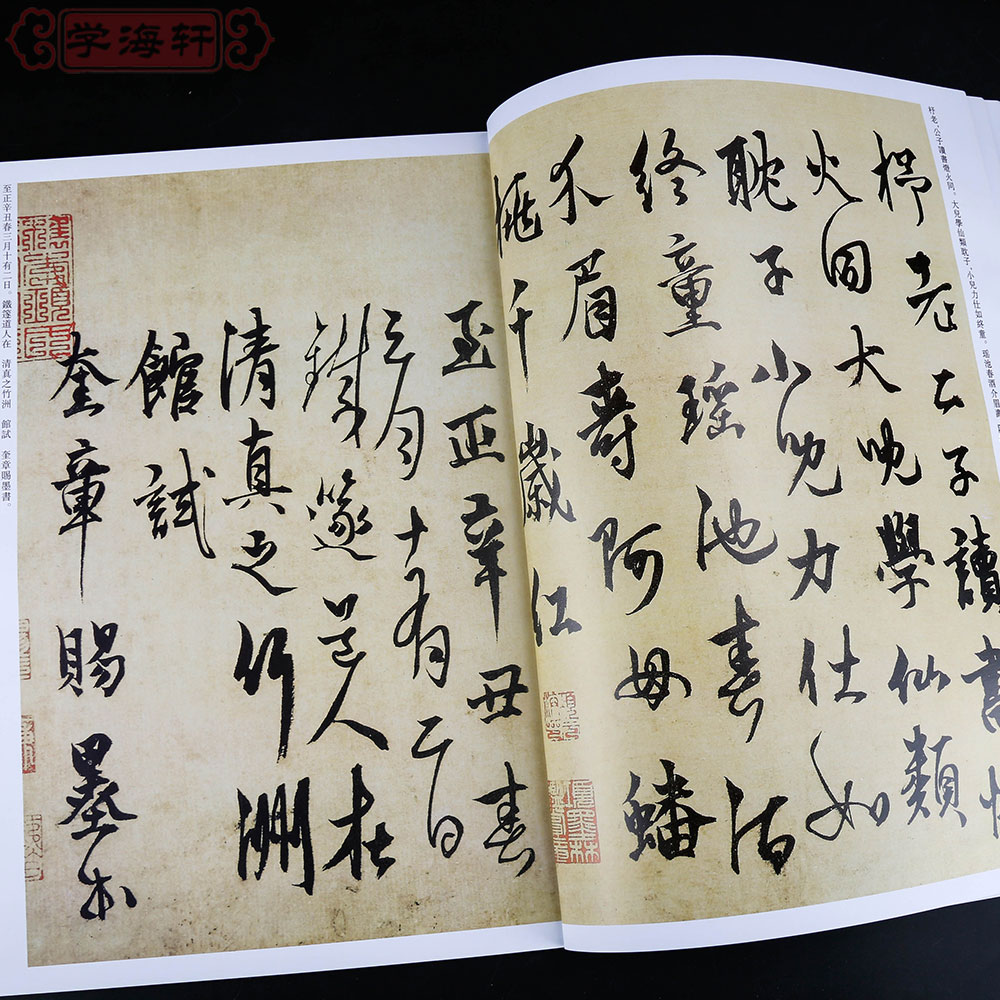 学海轩
杼老公子讀書
火同大兒學仙類
耽子小兒力仕如
終童瑶池春酒
介眉壽阿母蟠
桃千歲紅
至正辛丑春
三月十有二日
鐵篴道人在
清真之竹洲
館試
奎章賜墨書
杼老,公子讀書燈火同。大兒學仙類耽子,小兒力仕如終童。瑶池春酒介眉壽
至正辛丑春三月十有二日。鐵篴道人在 清真之竹洲 館試 奎章賜墨書。